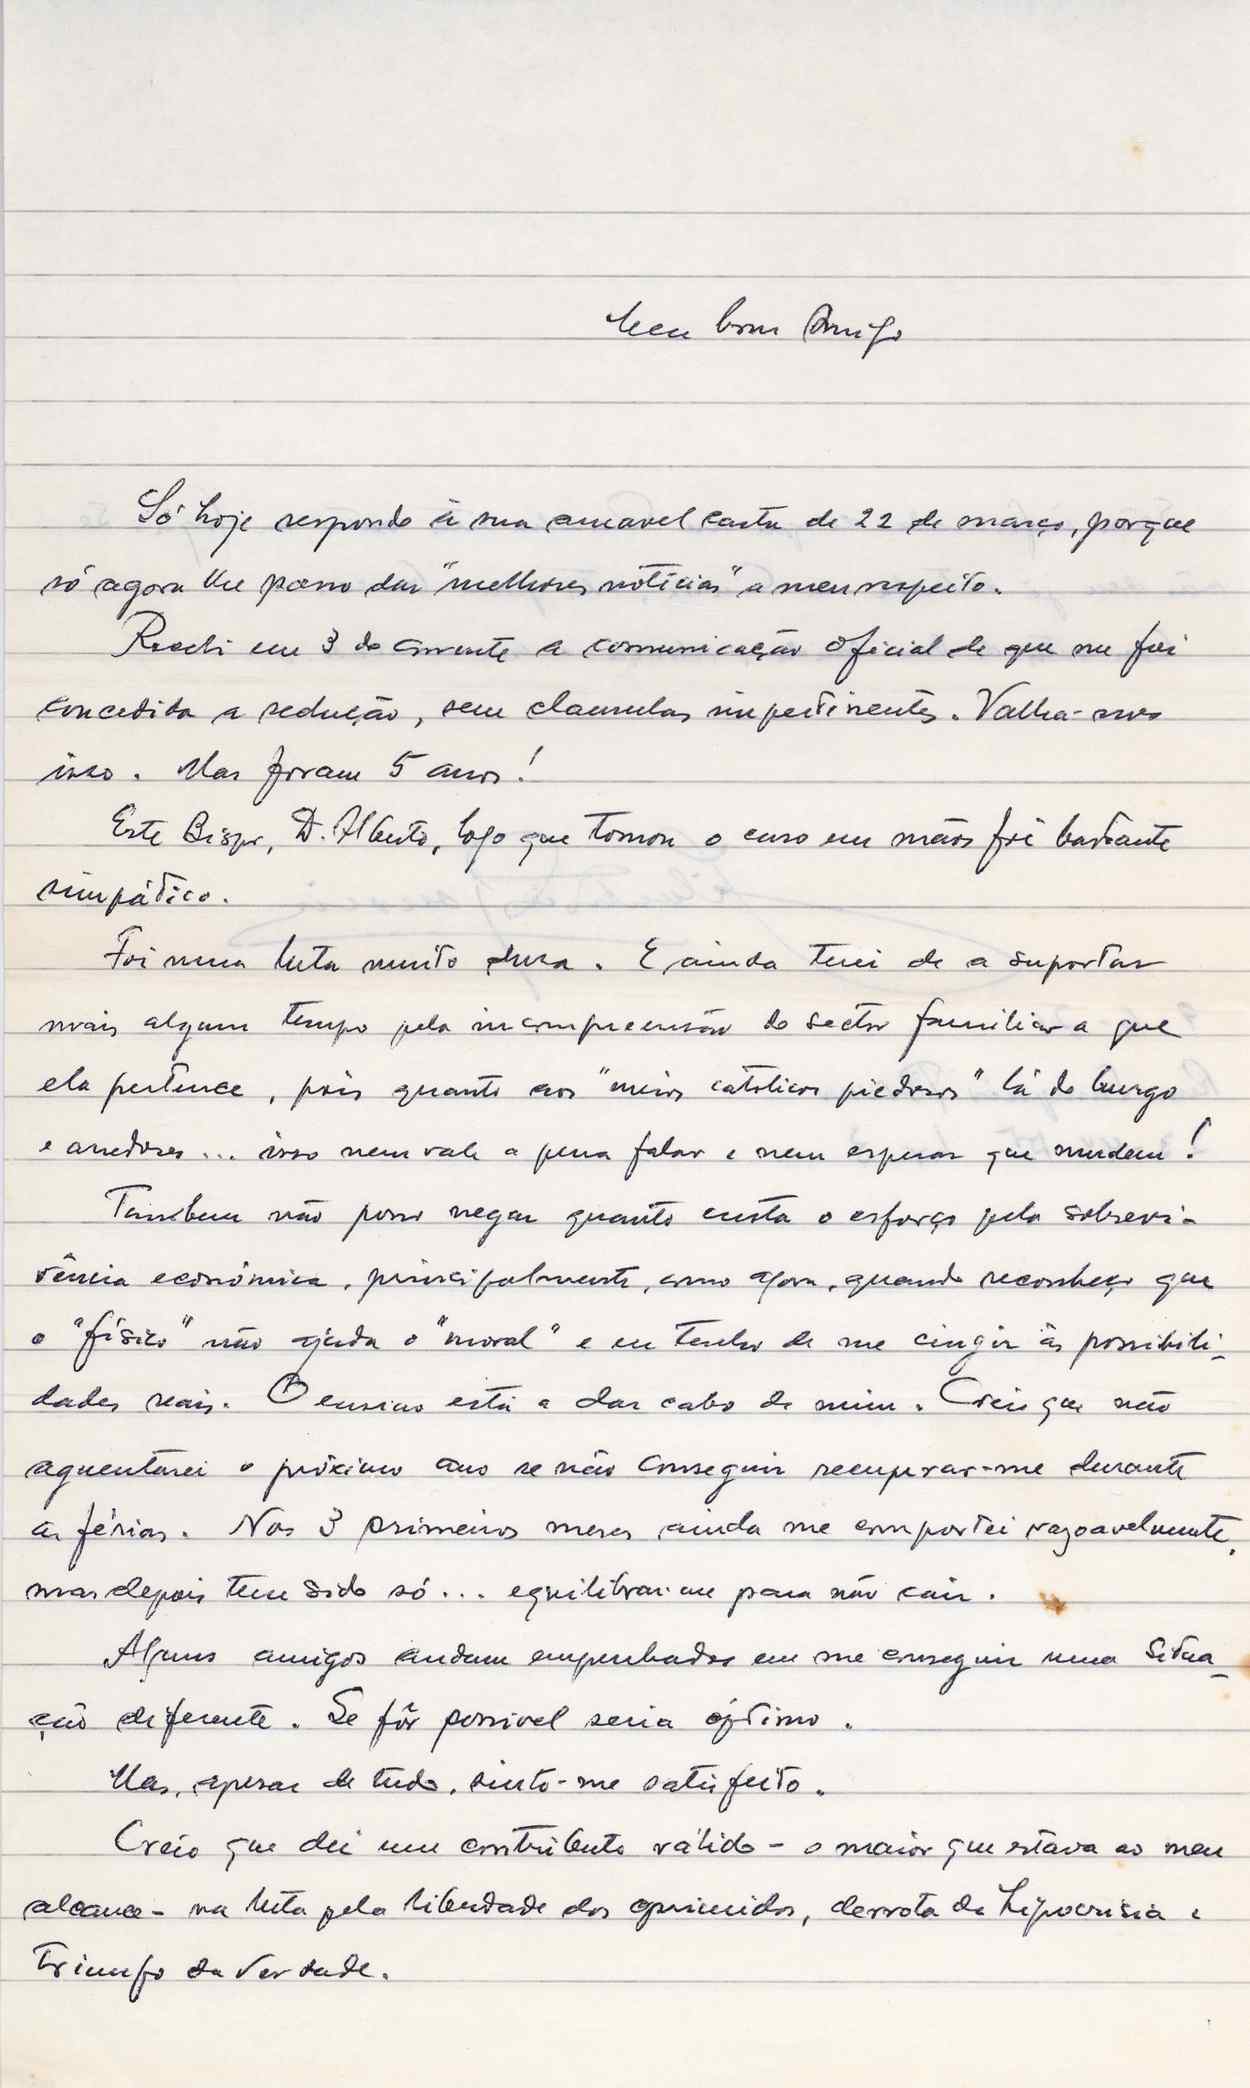 Meu bom Amigo
Só hoje respondo à sua amavel carta de 22 de março, porque
só agora lhe posso dar "melhores notícias" a meu respeito.
Recebi em 3 do corrente a comunicação oficial de que me foi
concedida a redução, sem clausulas impertinentes. Valha-nos
isso. Mas foram 5 anos!
Este Bispo, D. Alberto, logo que tomou o caso em mãos foi bastante
simpático.
Foi uma luta muito dura. E ainda terei de a suportar
mais algum tempo pela incompreensão do sector familiar a que
ela pertence, pois quanto aos "meios católicos piedosos" lá do burgo
e arredores... isso nem vale a pena falar e nem esperar que mudem!
Tambem não posso negar quanto custa o esforço pela sobrevi-
vência económica, principalmente, como agora, quando reconheço que
o "físico" não ajuda o "moral" e eu tenho de me cingir às possibili-
dades reais. O ensino está a dar cabo de mim. Creio que não
aguentarei o próximo ano se não conseguir recuperar-me durante
as férias. Nos 3 primeiros meses ainda me comportei razoavelmente,
mas depois tem sido só... equilibrar-me para não cair.
Alguns amigos andam empenhados em me conseguir uma situa-
ção diferente. Se fôr possivel seria óptimo.
Mas, apesar de tudo, sinto-me satisfeito.
Creio que dei um contributo válido - o maior que estava ao meu
alcance - na luta pela liberdade dos oprimidos, derrota da hipocrisia e
triunfo da Verdade.